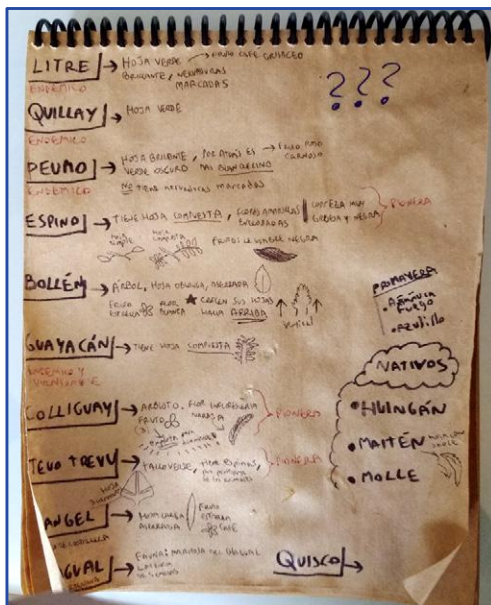 LITRE → HOJA VERDE → FRUTO CAFE GRISACEO
BRILLANTE, NERVADURAS
MARCADAS
ENDEMICO
???
QUILLAY → HOJA VERDE
ENDEMICO
PEUMO → HOJA BRILLANTE, POR ATRÁS ES → FRUTO ROJO
VERDE OSCURO MAS BLANQUECINO CARNOSO
ENDEMICO
NO TIENE NERVADURAS MARCADAS
ESPINO → TIENE HOJA COMPUESTA, FLORES AMARILLAS
CORTEZA MUY
GRUESA Y NEGRA
PIONERA
HOJA SIMPLE
HOJA COMPUESTA
FRUTO: LEGUMBRE NEGRA
BOLLÉN → ARBOL, HOJA OBLONGA, ASERRADA
FRUTO ESTRELLA
FLOR BLANCA
★ CRECEN SUS HOJAS
HACIA ARRIBA
Vertical
PRIMAVERA
• AZULILLO
GUAYACÁN → TIENE HOJA COMPUESTA
ENDEMICO Y
VULNERABLE
NATIVOS
• HUINGÁN
• MAITÉN
• MOLLE
COLLIGUAY → ARBUSTO, FLOR INFLORESCENCIA
FRUTO NARANJA
PIONERA
TEVO TREVU → TALLO VERDE, TIENE ESPINAS,
PIONERA
→ HOJA LARGA
ASERRADA
FRUTO
ESTRELLA
CAFE
FAUNA: MARIPOSA DEL CHAGUAL
QUISCO →